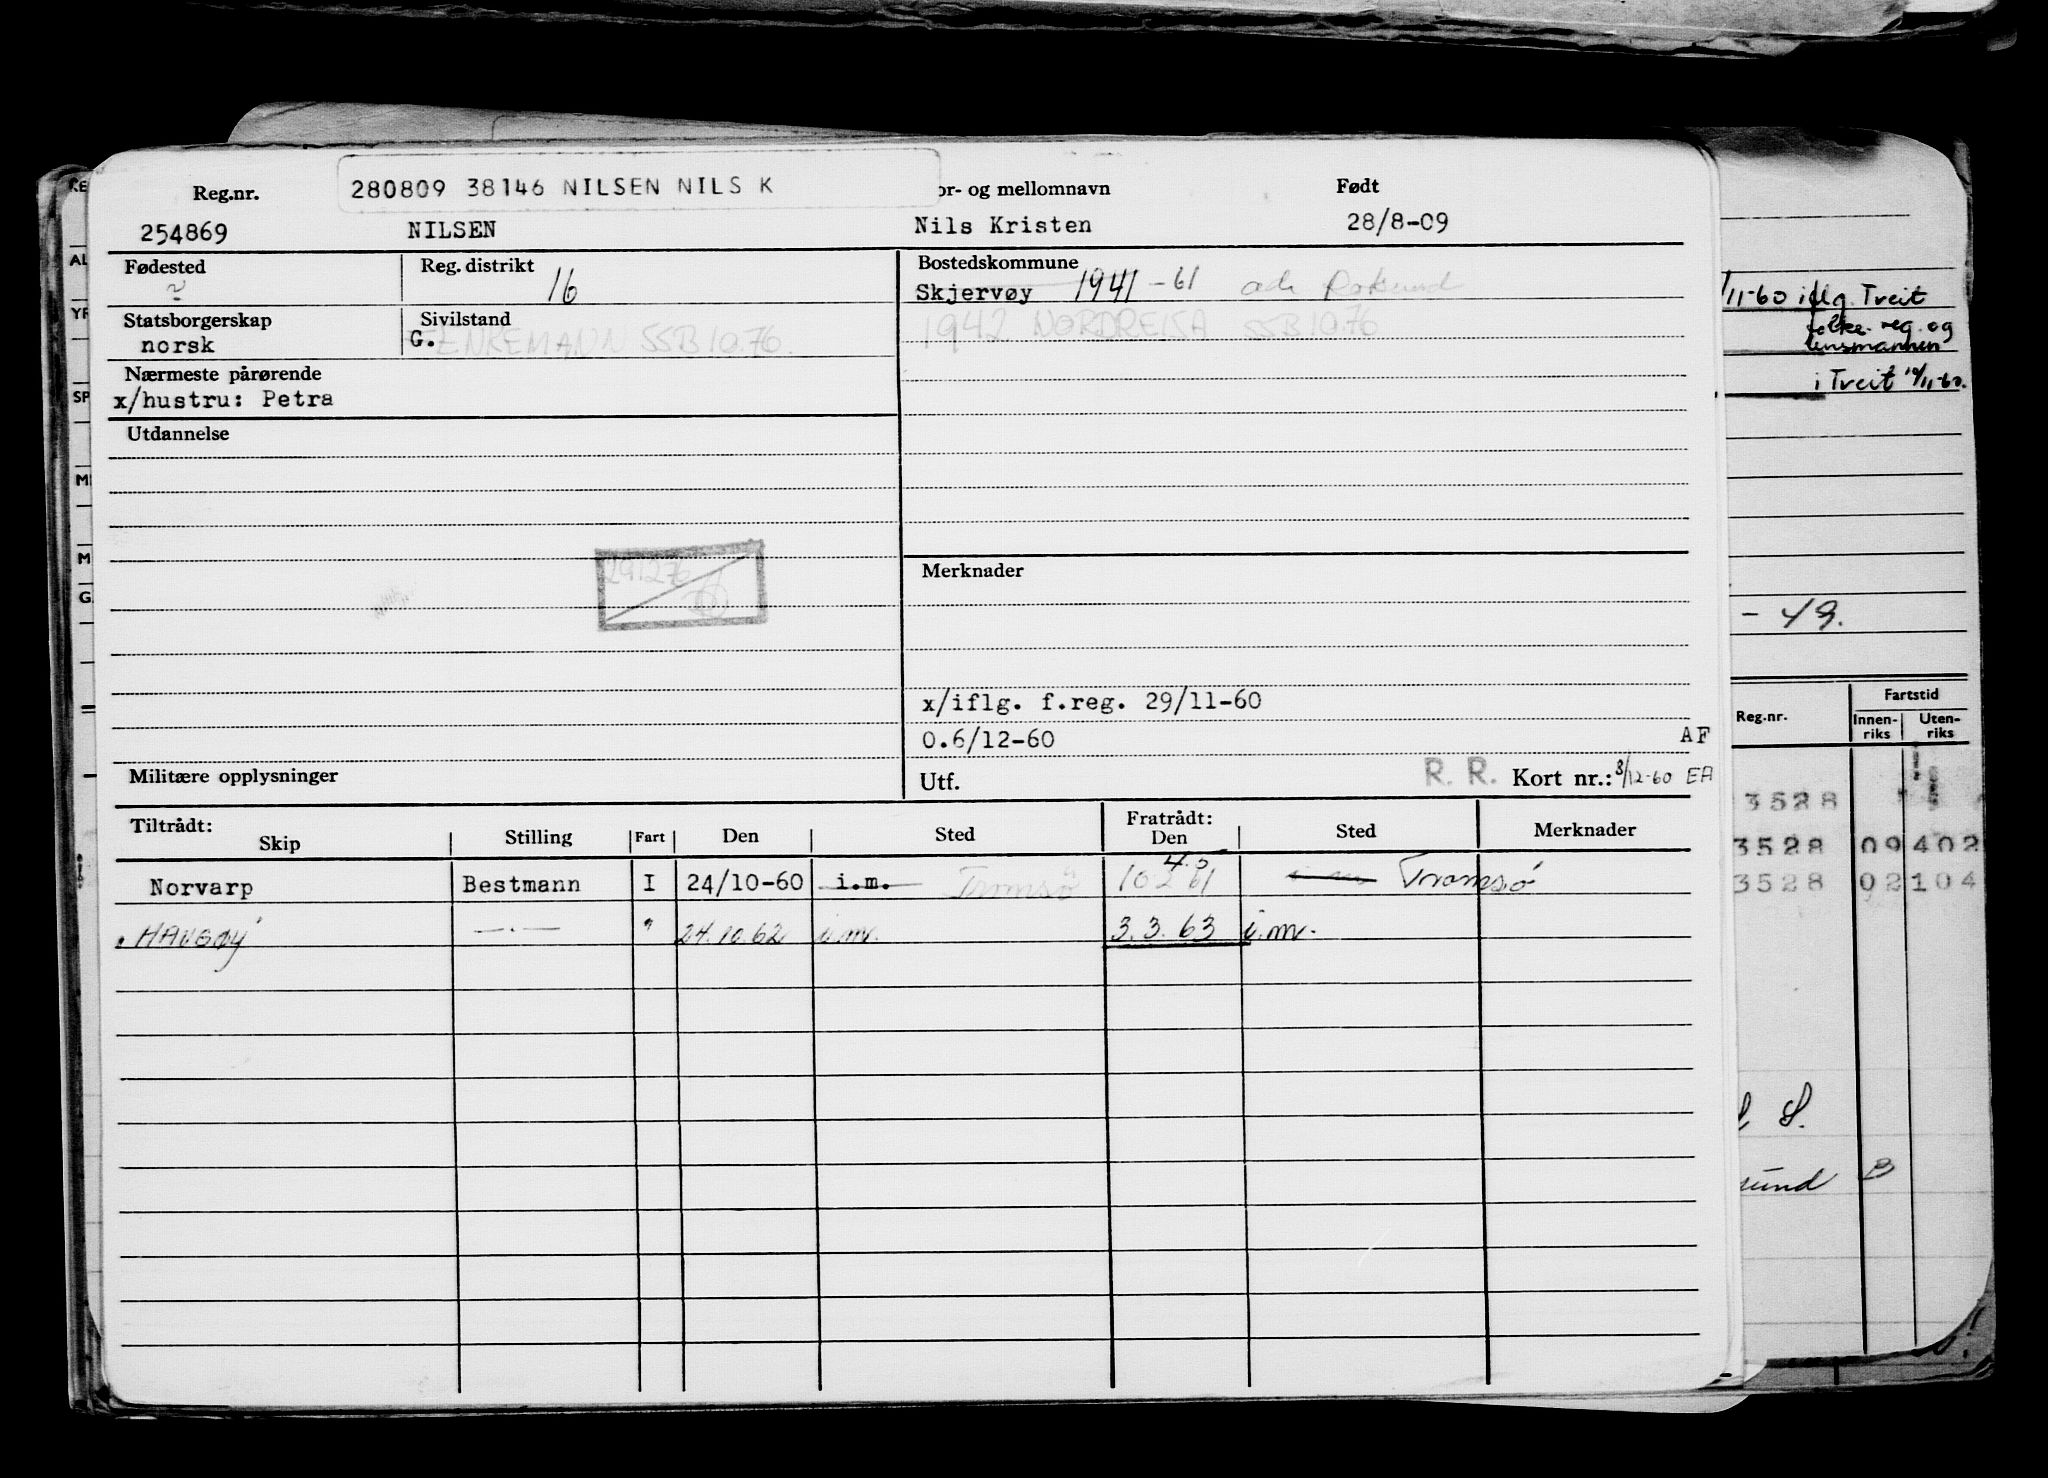 280809 38146 NILSEN NILS K
Reg.nr. or- og mellomnavn Født
254869 NILSEN Nils Kristen 28/8-09
Fødested Reg. distrikt 16 Bostedskommune
Skjervøy 1941 -61
Statsborgerskap Sivilstand 1942 NORDREISA SSB 10.76
norsk G. ENKEMANN SSB 10.76.
Nærmeste pårørende
x/hustru: Petra
Utdannelse
291276
Merknader
x/iflg. f.reg. 29/11-60
0.6/12-60 AF
Militære opplysninger Utf. R. R. Kort nr.: 8/12-60 EA
Tiltrådt: Fratrådt:
Skip Stilling Fart Den Sted Den Sted Merknader
Norvarp Bestmann I 24/10-60 i.m. Tromsø Tromsø
HAUGØY —.— " 24.10.62 i.m. 3.3.63 i.m.
/11-60 iflg. Treit
folke.reg. og
lensmannen
i Treit
AL
YR
SP
M
M
G
- 49.
Fartstid
Reg.nr. Innen- Uten-
riks riks
3528
3528 09 402
3528 02 104
S.
sund B